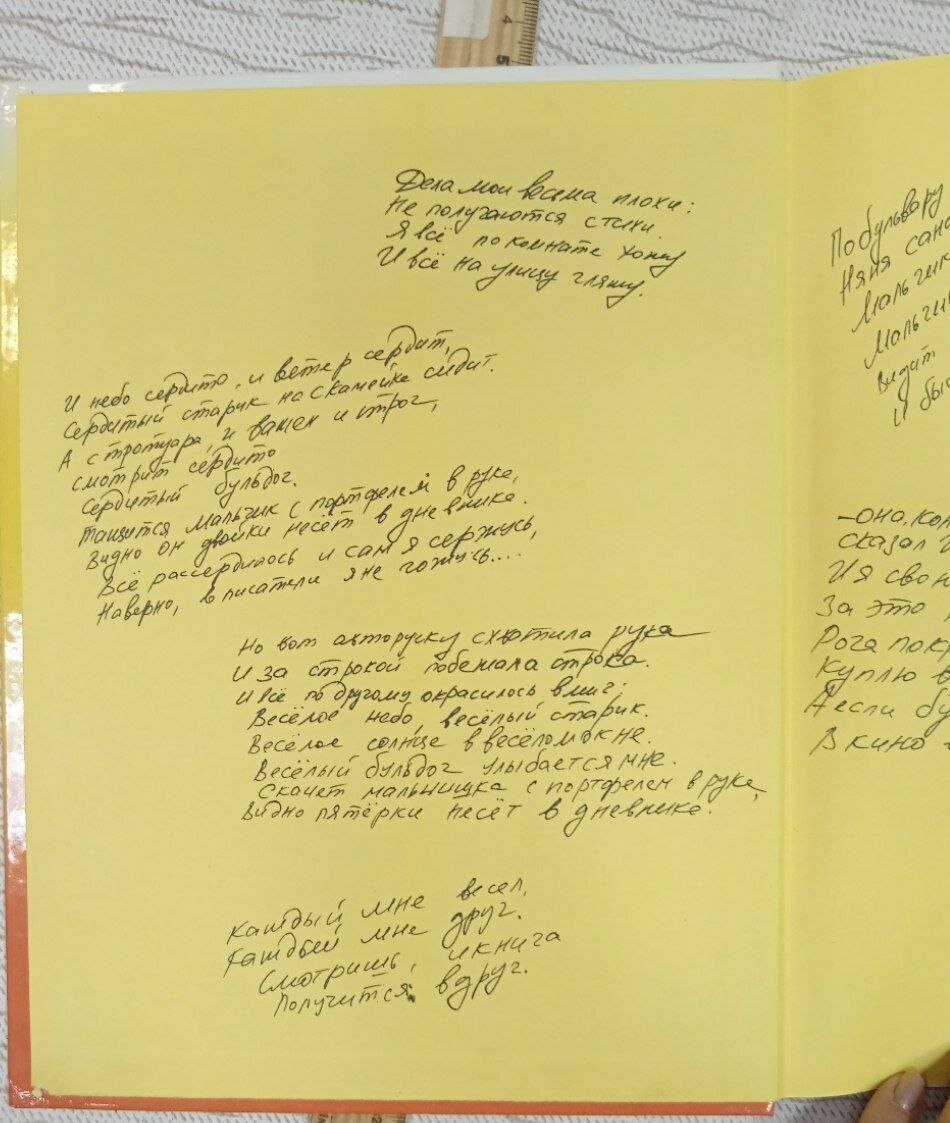 Дела мои весьма плохи:
Не получаются стихи.
Я всё по комнате хожу
И всё на улицу гляжу.
И небо сердито, и ветер сердит,
Сердитый старик на скамейке сидит.
А с тротуара, и важен и строг,
смотрит сердито
Сердитый бульдог.
Тащится мальчик с портфелем в руке,
Видно он двойки несёт в дневнике.
Всё рассердилось и сам я сержусь,
Наверно, в писатели я не гожусь....
Но вот авторучку схватила рука
И за строкой побежала строка.
И всё по другому окрасилось вмиг:
Весёлое небо, весёлый старик.
Весёлое солнце в весёлом окне.
Весёлый бульдог улыбается мне.
Скачет мальчишка с портфелем в руке,
Видно пятёрки несёт в дневнике.
Каждый мне весел,
Каждый мне друг.
Смотришь, и книга
Получится вдруг.
По бульвару
Няня
Мальчик
Видит
И
-Она,
сказал
И я
За это
Рога
Куплю
А если
В кино
5 4